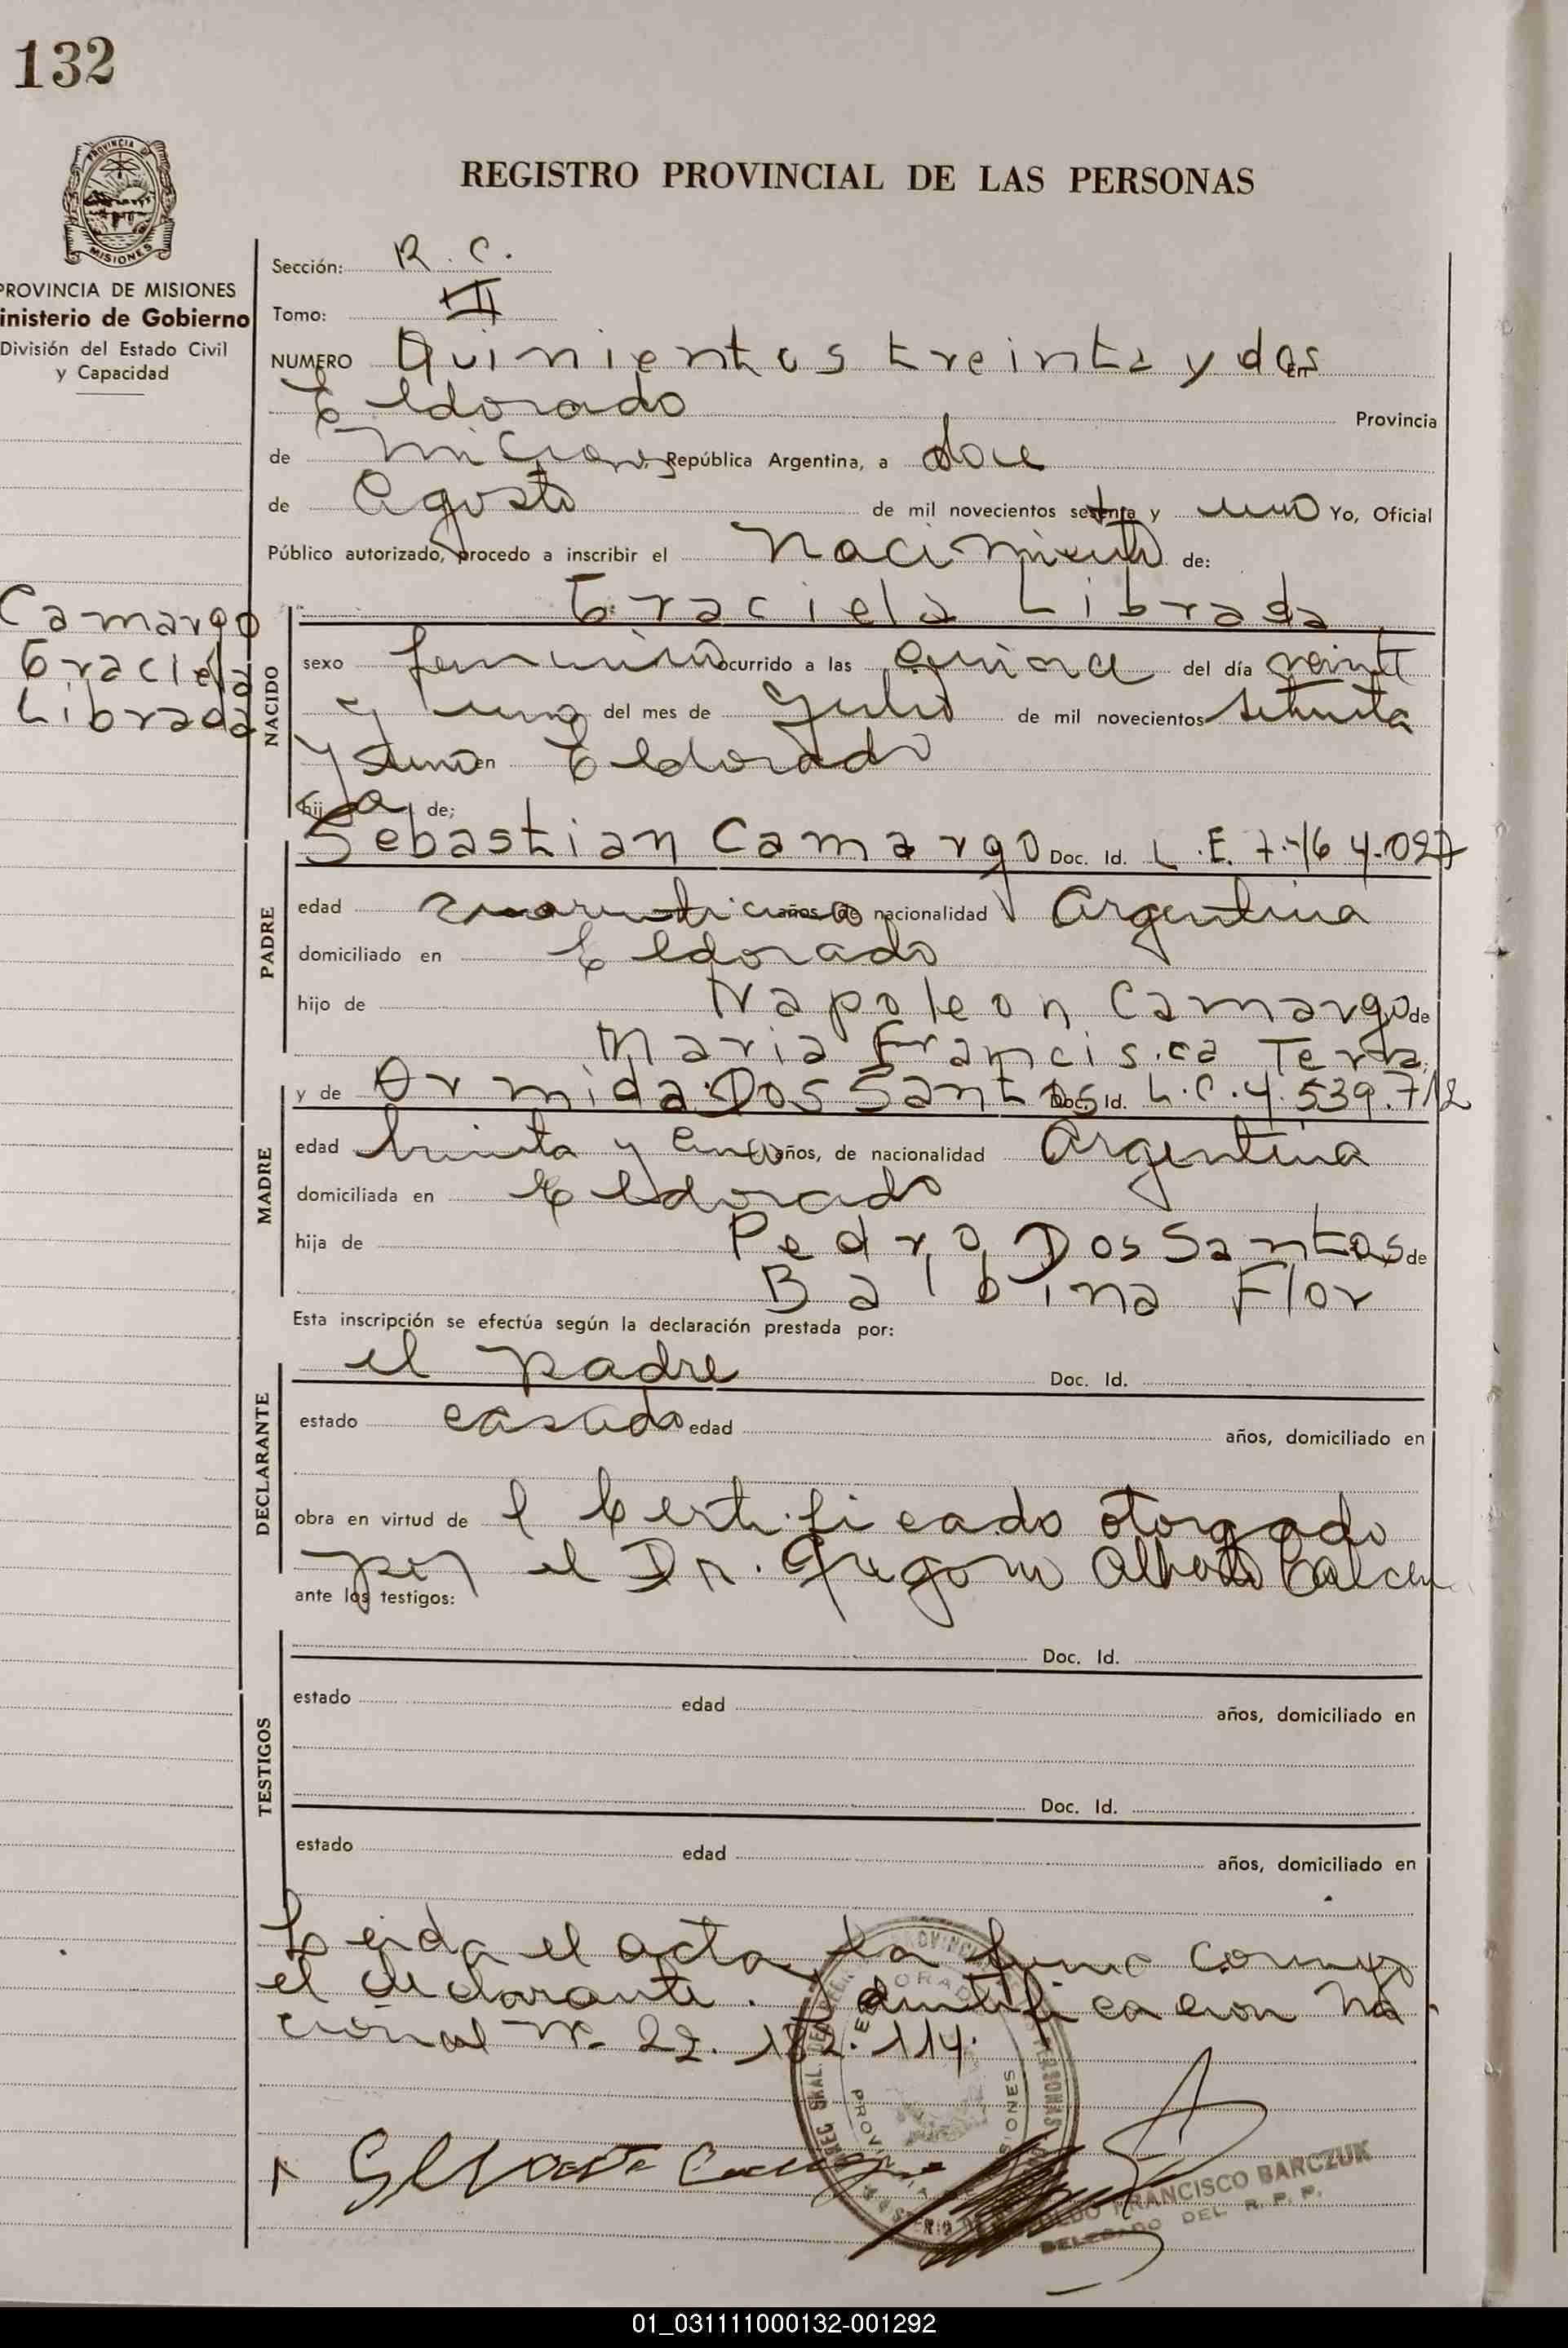 132
PROVINCIA DE
MISIONES
PROVINCIA DE MISIONES
inisterio de Gobierno
División del Estado Civil
y Capacidad
REGISTRO PROVINCIAL DE LAS PERSONAS
Sección: R. C.
Tomo: III
NUMERO Quinientos treinta y dos En
Eldorado Provincia
de Misiones, República Argentina, a doce
de Agosto de mil novecientos setenta y uno Yo, Oficial
Público autorizado, procedo a inscribir el Nacimiento de:
Camargo
Graciela
Librada
NACIDO
Graciela Librada
sexo femenino ocurrido a las quince del día veinte
y uno del mes de Julio de mil novecientos setenta
y uno en Eldorado
hija de;
PADRE
Sebastian Camargo Doc. Id. L.E. 7.464.027
edad años de nacionalidad Argentina
domiciliado en Eldorado
hijo de Napoleon Camargo de
Maria Francisca Terra
MADRE
y de Ormida Dos Santos Doc. Id. L.C. 4.539.712
edad treinta y cinco años, de nacionalidad Argentina
domiciliada en Eldorado
hija de Pedro Dos Santos de
Balbina Flor
Esta inscripción se efectúa según la declaración prestada por:
DECLARANTE
el padre Doc. Id.
estado casado edad años, domiciliado en
obra en virtud de l Certificado otorgado
por el Dr. Gregorio Alberto
ante los testigos:
TESTIGOS
Doc. Id.
estado edad años, domiciliado en
Doc. Id.
estado edad años, domiciliado en
Leida el acta, la firma conmigo
el declarante. Identificacion Na
cional Nº 22.182.114.
FRANCISCO BARCZUK
DELEGADO DEL R. P. P.
01_031111000132-001292